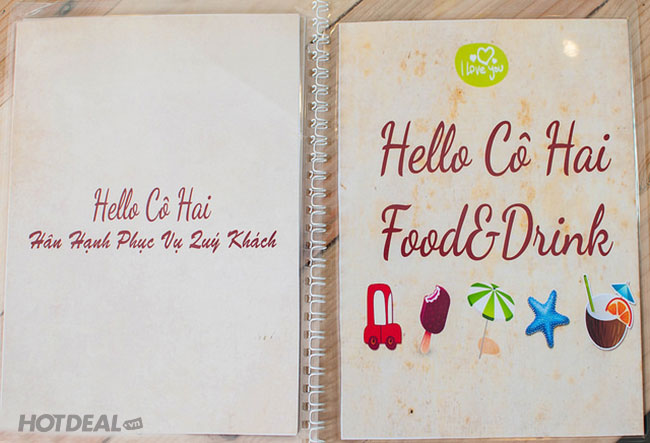 Hello Cô Hai
Hân Hạnh Phục Vụ Quý Khách
I Love You
Hello Cô Hai
Food&Drink
HOTDEAL.vn